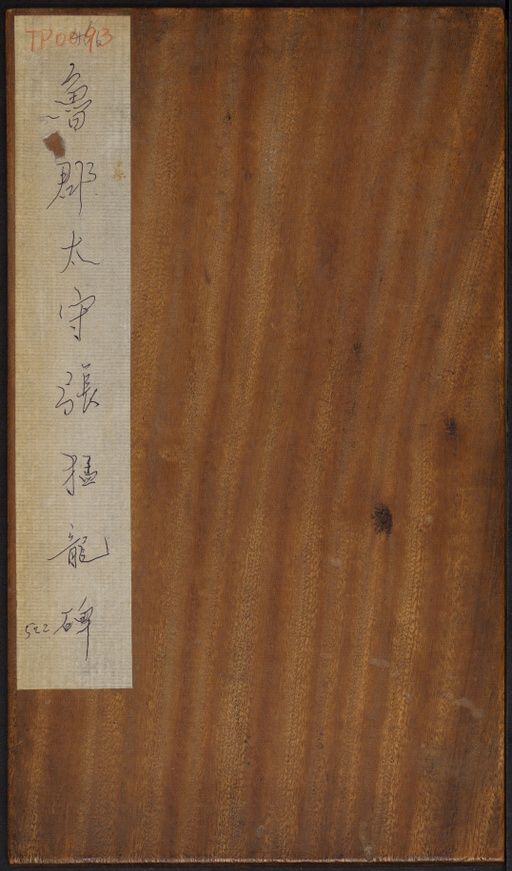 魯郡太守張猛龍碑
522